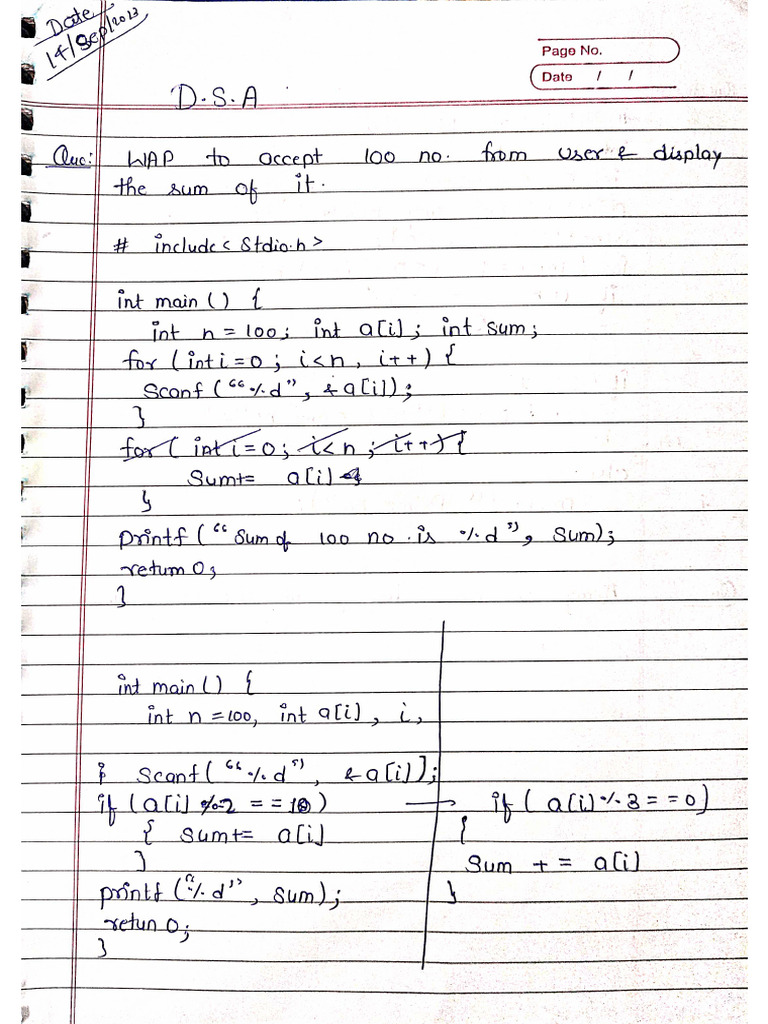 Date
14/Sep/2023
Page No.
Date / /
D.S.A
Que: WAP to accept 100 no. from user & display
the sum of it.
# include < Stdio.h >
int main () {
int n = 100; int a[i]; int sum;
for (int i = 0; i < n, i++) {
Scanf ("%d", & a[i]);
}
for ( int i = 0; i < n; i++) {
Sum+= a[i]
}
printf ("Sum of 100 no. is %d", Sum);
return 0;
}
int main () {
int n = 100, int a[i], i,
Scanf ("%d", & a[i]);
if (a[i] % 2 == ) → if ( a[i] % 3 == 0)
{ Sum+= a[i] {
} Sum += a[i]
printf ("%d", Sum); }
retun 0;
}